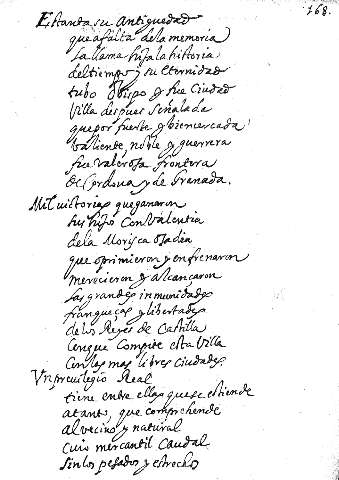 168.
Es tanta su Antiguedad
que a falta de la memoria
la llama hija la historia
del tiempo, y su eternidad
tubo Obispo y fue Ciudad
Villa despues señalada
que por fuerte y bien cercada
valiente, noble y guerrera
fue valerosa frontera
de Cordova y de Granada.
Mil victorias que ganaron
sus hijos con Valentia
de la Morisca osadia
que oprimieron y enfrenaron
merecieron y alcançaron
las grandes inmunidades
franqueças y libertades
de los Reyes de Castilla
con que compite esta Villa
con las mas libres ciudades.
Un previlegio Real
tiene entre ellas que se estiende
a tanto, que comprehende
al vecino y natural
cuio mercantil Caudal
sin los pesados y estrechos